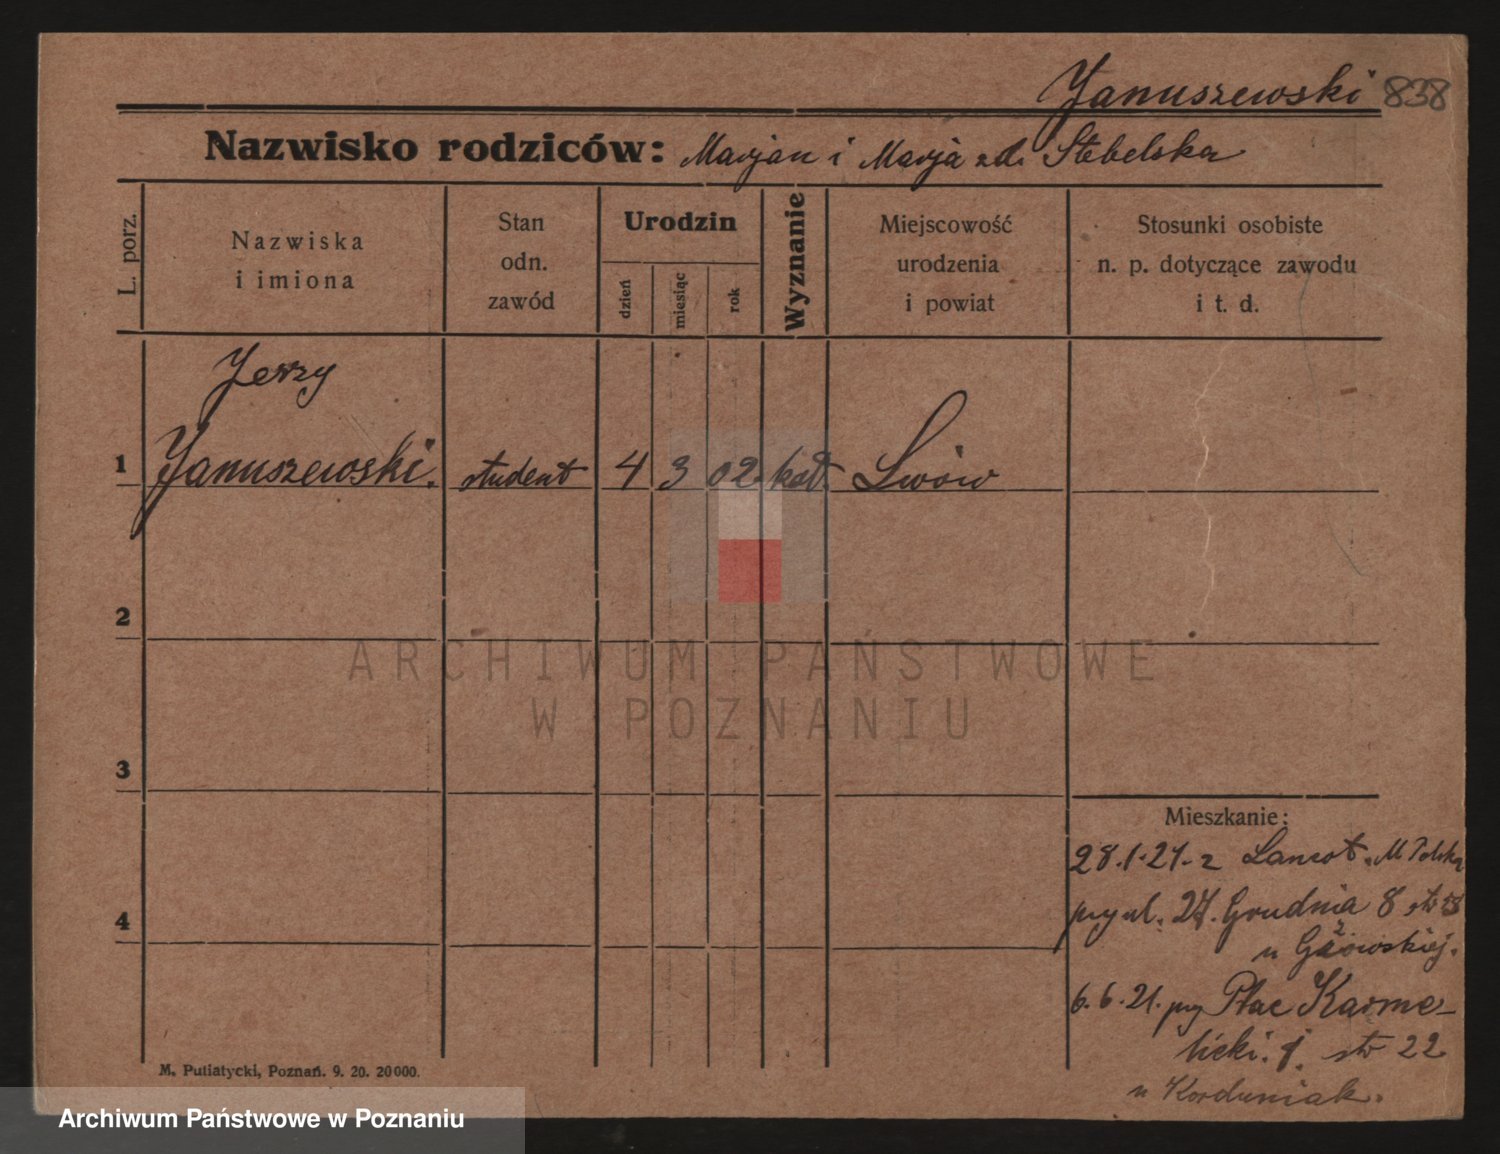 Januszewski 838
Nazwisko rodziców: Marjan i Marja zd. Stebelska
L. porz.
Nazwiska
i imiona
Stan
odn.
zawód
Urodzin
dzień
miesiąc
rok
Wyznanie
Miejscowość
urodzenia
i powiat
Stosunki osobiste
n. p. dotyczące zawodu
i t. d.
Jerzy
1 Januszewski. student 4 3 02 kat. Lwów
2
3
4
Mieszkanie:
28.1.21. z M Polska
przy ul. 27. Grudnia 8 str 18
u
6.6.21. przy Plac Karme-
licki. 1. str 22
u Korduniak.
M. Putiatycki, Poznań. 9. 20. 20000.
ARCHIWUM PAŃSTWOWE
W POZNANIU
Archiwum Państwowe w Poznaniu